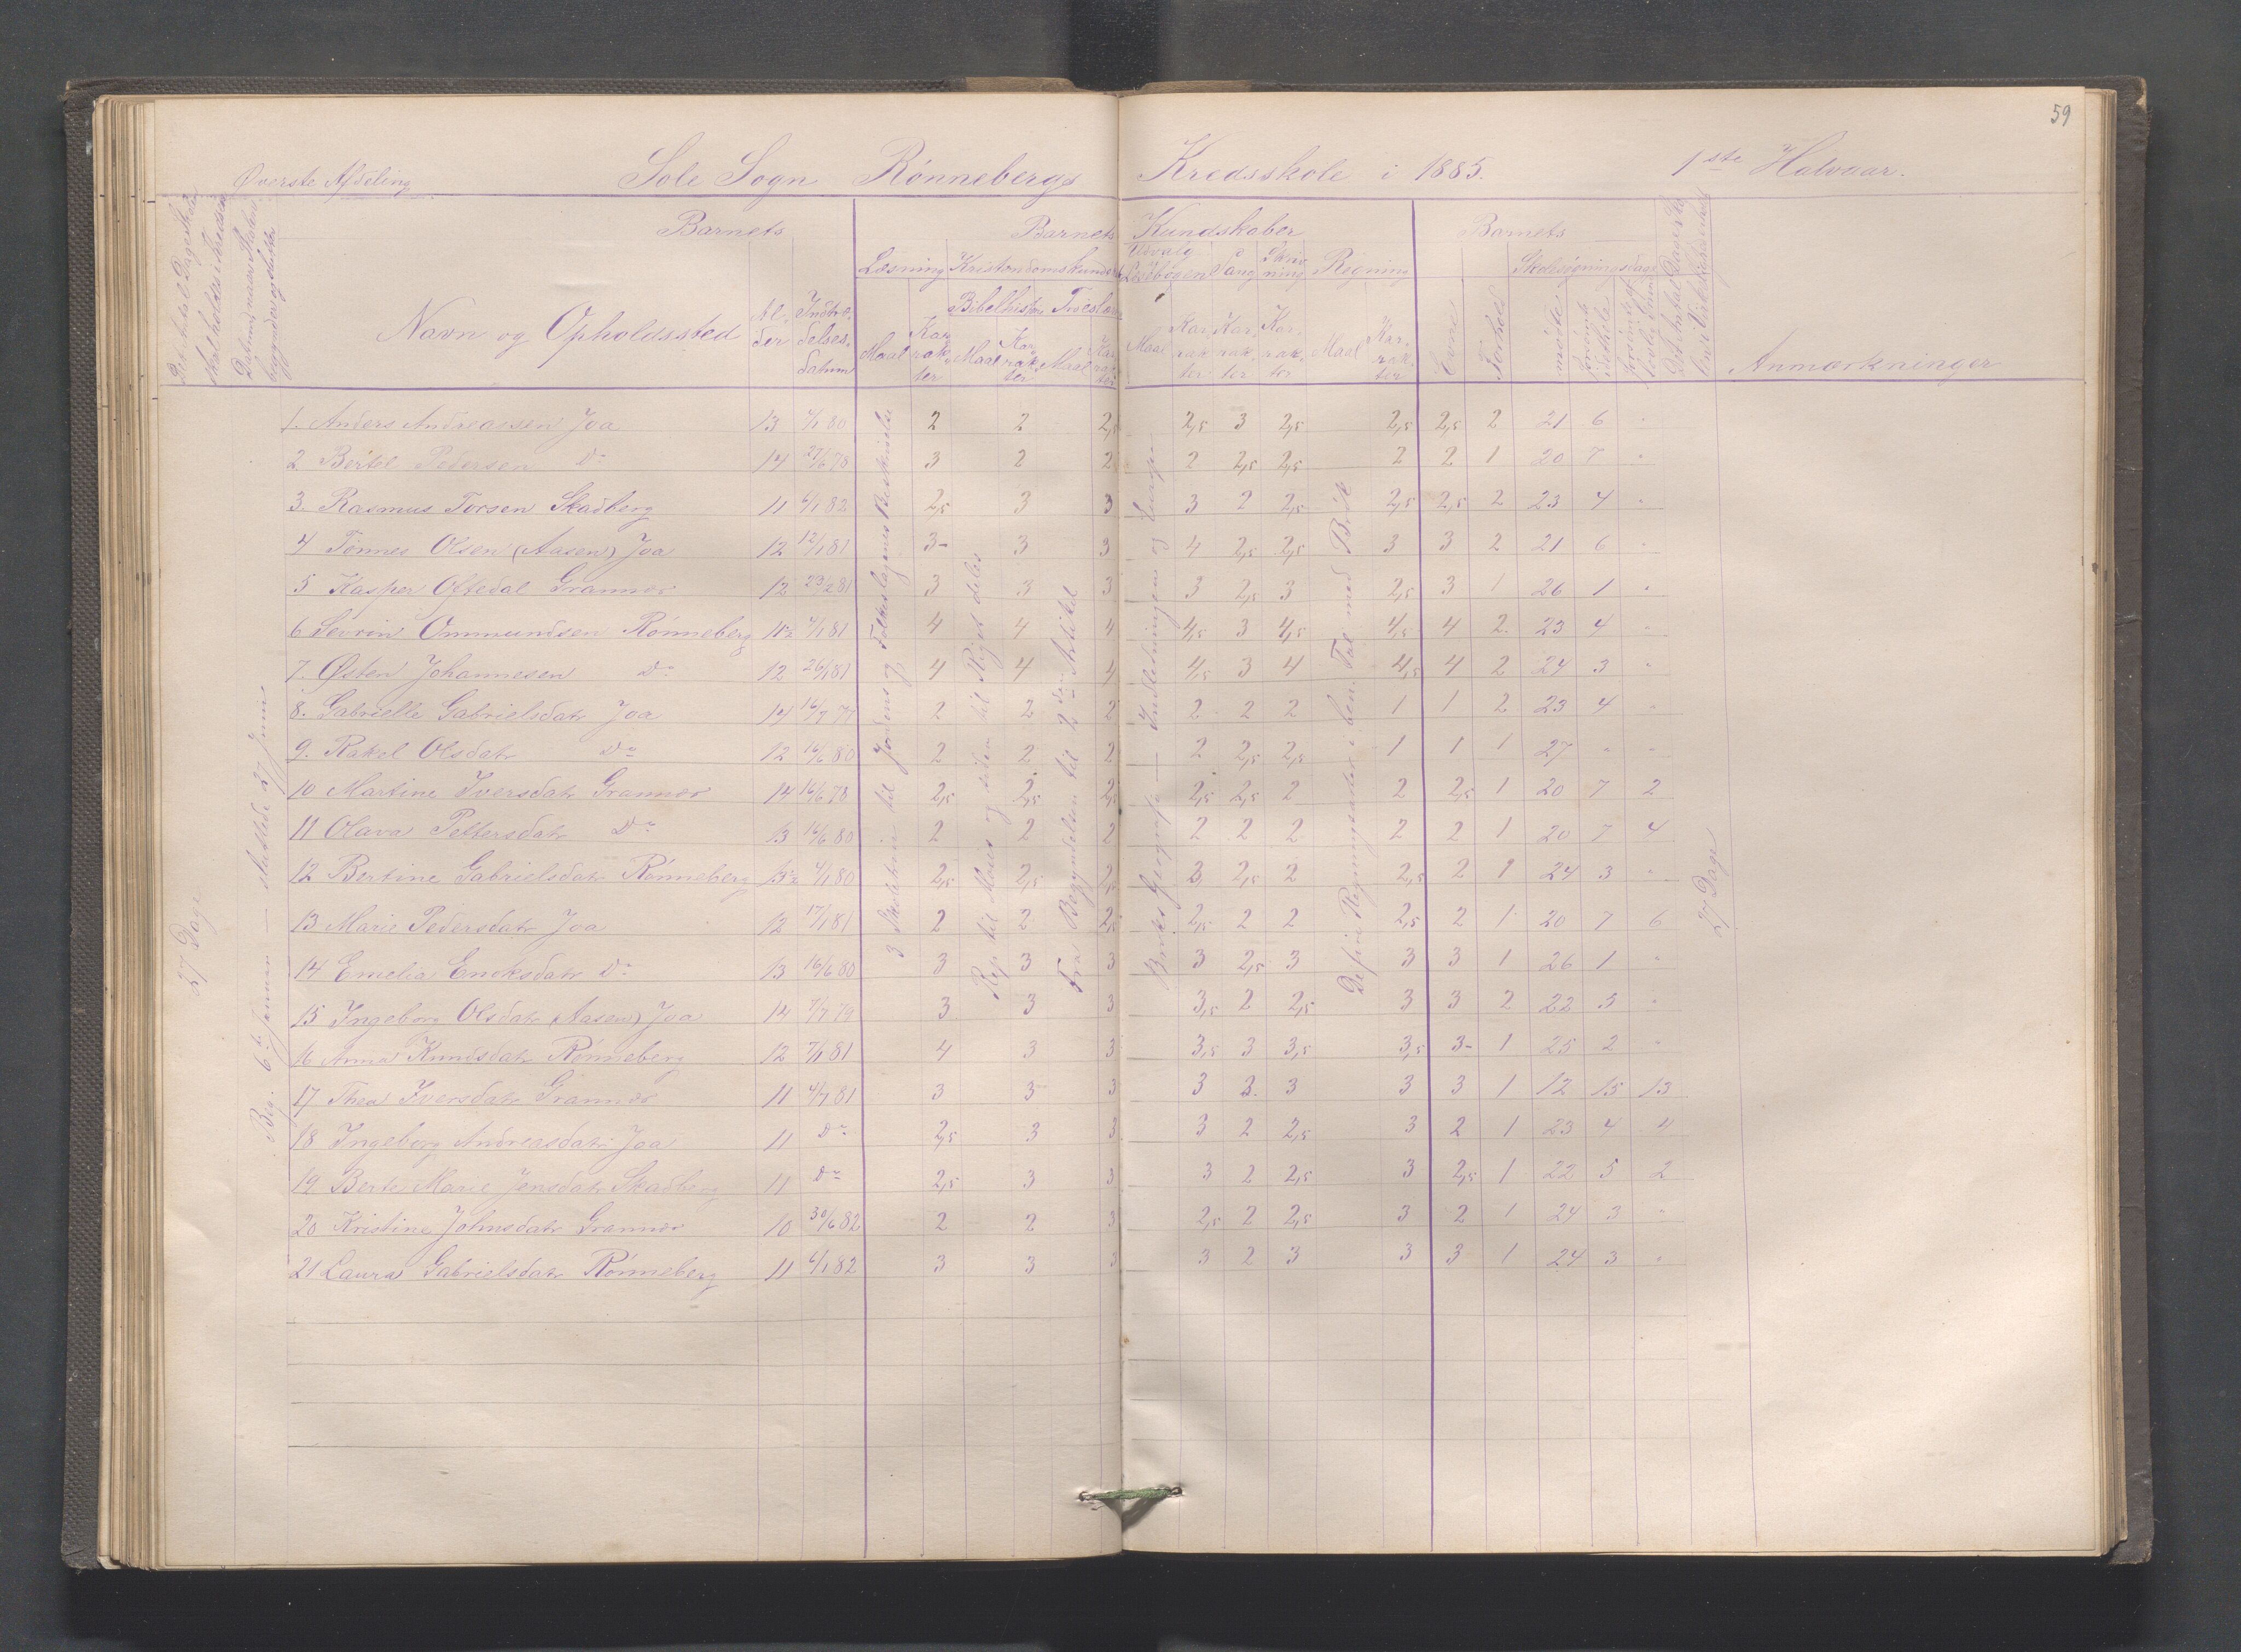 59
Øverste Afdeling Sole Sogn Rønnebergs Kredsskole i 1885. 1ste Halvaar.
Barnets Barnets Kundskaber Barnets
Læsning Kristendomskundsk Udvalg Læsebogen Sang Skriv ning Regning Skolesøgningsdage
Bibelhist Troeslære
Navn og Opholdssted Al- der Indtræ- delses- datum Maal Kar- rak- ter Maal Kar- rak- ter Maal Kar- rak- ter Maal Kar- rak- ter Kar- rak- ter Kar- rak- ter Maal Kar- rak- ter Evne Forhold mødte forsømte Anmærkninger
27 Dage
Beg. 6te Januar — sluttede 27 Juni
3 Skoletrin til Jordens og Folkeslagenes Beskrivelse
Rep til Moses og siden til Riget deles
Fra Begyndelsen til 2den Artikel
Geografi — Indledningen og Europa
Regningsarter i ben. Tal med Brøk
27 Dage
1. Anders Andreassen Joa 13 7/1 80 2 2 2,5 2,5 3 2,5 2,5 2,5 2 21 6 "
2 Bertel Pedersen Do 14 27/6 78 3 2 2 2 2,5 2,5 2 2 1 20 7 "
3. Rasmus Torsen Skadberg 11 6/1 82 2,5 3 3 3 2 2,5 2,5 2,5 2 23 4 "
4 Tønnes Olsen (Aasen) Joa 12 12/1 81 3- 3 3 4 2,5 2,5 3 3 2 21 6 "
5 Kasper Oftedal Grannes 12 23/2 81 3 3 3 3 2,5 3 2,5 3 1 26 1 "
6 Sevrin Ommundsen Rønneberg 11½ 7/1 81 4 4 4 4,5 3 4,5 4,5 4 2. 23 4 "
7. Østen Johannesen Do 12 26/1 81 4 4 4 4,5 3 4 4,5 4 2 24 3 "
8. Gabrielle Gabrielsdatr Joa 14 16/7 77 2 2 2 2 2 2 1 1 2 23 4 "
9. Rakel Olsdatr Do 12 16/6 80 2 2 2 2 2,5 2,5 1 1 1 27 " "
10 Martine Iversdatr Grannes 14 16/6 78 2,5 2,5 2,5 2,5 2,5 2 2 2,5 1 20 7 2
11 Olava Pettersdatr Do 13 16/6 80 2 2 2 2 2 2 2 2 1 20 7 4
12 Bertine Gabrielsdatr Rønneberg 13½ 7/1 80 2,5 2,5 2,5 3 2,5 2 2,5 2 1 24 3 "
13 Marie Pedersdatr Joa 12 17/1 81 2 2 2,5 2,5 2 2 2,5 2 1 20 7 6
14 Emelia Eriksdatr Do 13 16/6 80 3 3 3 3 2,5 3 3 3 1 26 1 "
15 Ingeborg Olsdatr (Aasen) Joa 14 7/7 79 3 3 3 3,5 2 2,5 3 3 2 22 5 "
16 Anna Knudsdatr Rønneberg 12 7/1 81 4 3 3 3,5 3 3,5 3,5 3- 1 25 2 "
17 Thea Iversdatr Grannes 11 4/7 81 3 3 3 3 2. 3 3 3 1 12 15 13
18 Ingeborg Andreasdatr Joa 11 Do 2,5 3 3 3 2 2,5 3 2 1 23 4 4
19 Berte Marie Jensdatr Skadberg 11 Do 2,5 3 3 3 2 2,5 3 2,5 1 22 5 2
20 Kristine Johnsdatr Grannes 10 30/6 82 2 2 3 2,5 2 2,5 3 2 1 24 3 "
21 Laura Gabrielsdatr Rønneberg 11 6/1 82 3 3 3 3 2 3 3 3 1 24 3 "